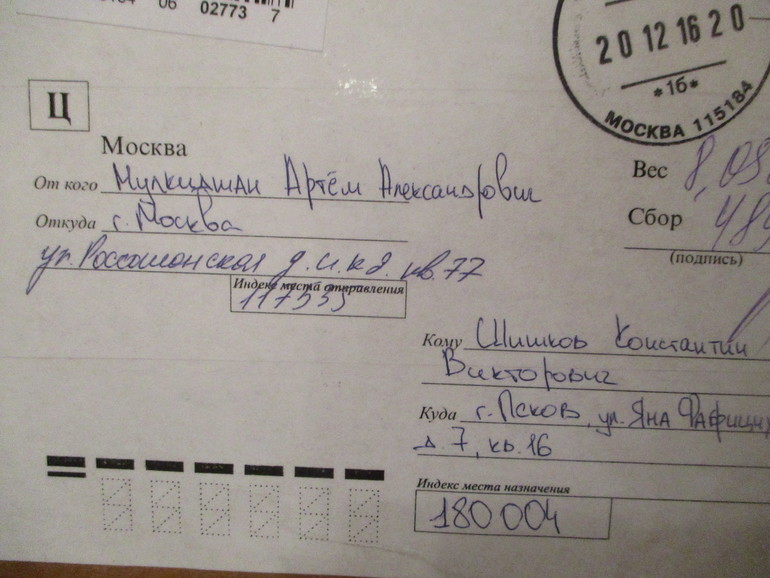 06 02773 7
20 12 16 20
*1б*
МОСКВА 115184
Ц
Москва
От кого Артём Александрович
Откуда г. Москва
ул. Россошанская кв. 77
Индекс места отправления
Вес
Сбор
(подпись)
Кому Шишков Константин
Викторович
Куда г. Псков, ул. Яна
д. 7, кв. 16
Индекс места назначения
180004